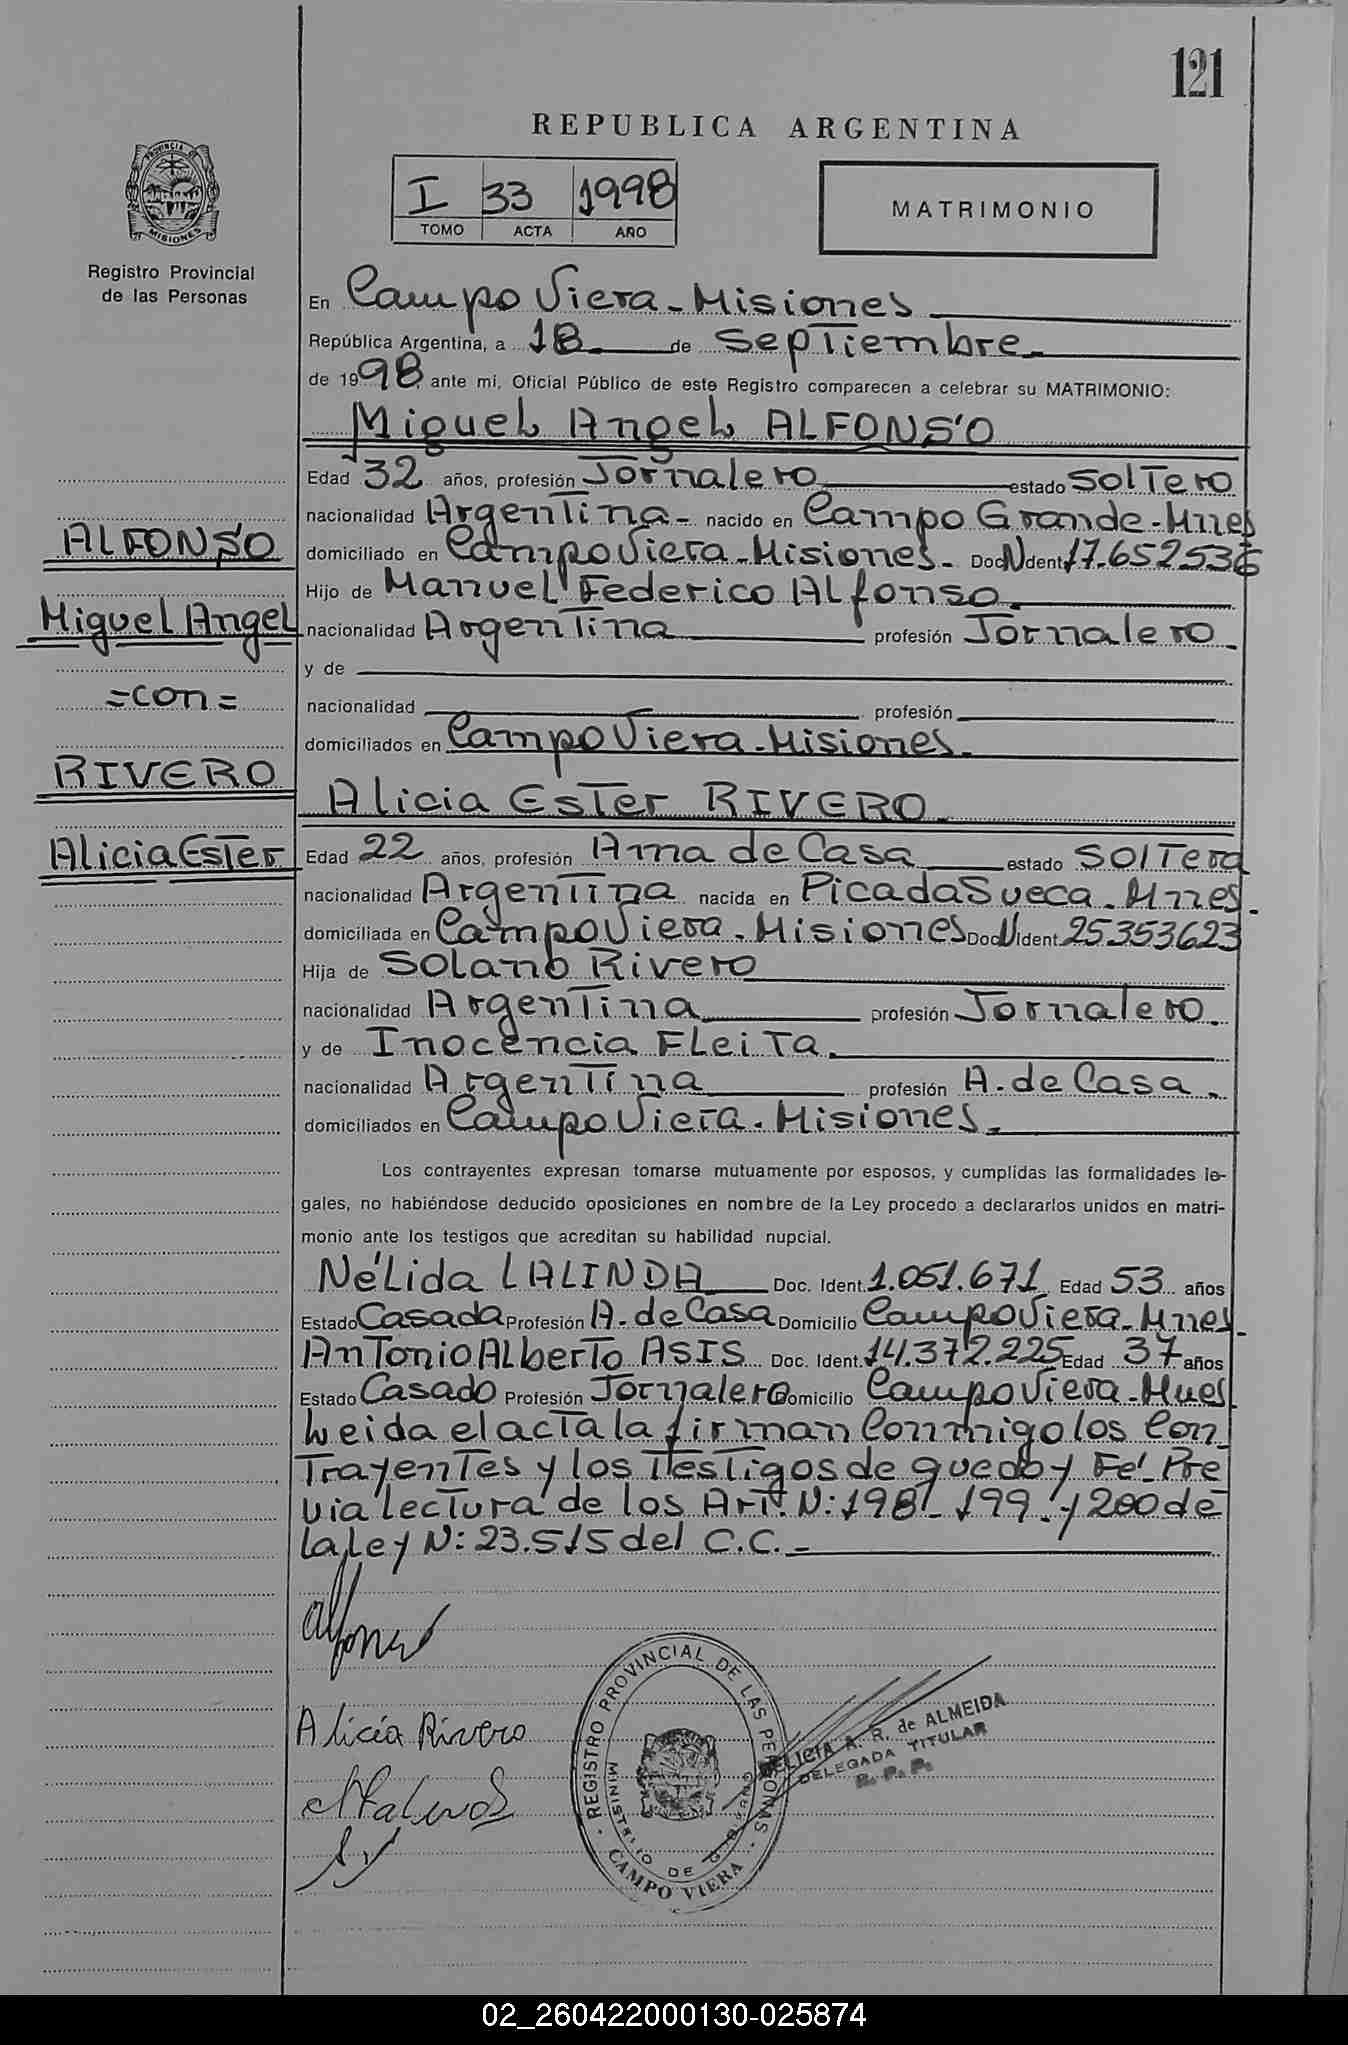 121
REPUBLICA ARGENTINA
PROVINCIA DE
MISIONES
Registro Provincial
de las Personas
I 33 1998
TOMO ACTA AÑO
MATRIMONIO
En Campo Viera - Misiones
República Argentina, a 18 de Septiembre
de 1998 ante mi, Oficial Público de este Registro comparecen a celebrar su MATRIMONIO:
Miguel Angel ALFONSO
Edad 32 años, profesión Jornalero estado Soltero
nacionalidad Argentina - nacido en Campo Grande - Mnes
domiciliado en Campo Viera - Misiones - Doc N Ident 17.652536
Hijo de Manuel Federico Alfonso
nacionalidad Argentina profesión Jornalero
y de
nacionalidad profesión
domiciliados en Campo Viera - Misiones
ALFONSO
Miguel Angel
= con =
RIVERO
Alicia Ester
Alicia Ester RIVERO
Edad 22 años, profesión Ama de Casa estado Soltera
nacionalidad Argentina nacida en Picada Sueca - Mnes.
domiciliada en Campo Viera - Misiones Doc N Ident 25353623
Hija de Solano Rivero
nacionalidad Argentina profesión Jornalero
y de Inocencia Fleita
nacionalidad Argentina profesión A. de Casa
domiciliados en Campo Viera - Misiones
Los contrayentes expresan tomarse mutuamente por esposos, y cumplidas las formalidades le-
gales, no habiéndose deducido oposiciones en nombre de la Ley procedo a declararlos unidos en matri-
monio ante los testigos que acreditan su habilidad nupcial.
Nélida LALINDA Doc. Ident. 1.051.671 Edad 53 años
Estado Casada Profesión A. de Casa Domicilio Campo Viera - Mnes
Antonio Alberto ASIS Doc. Ident. 14.372.225 Edad 37 años
Estado Casado Profesión Jornalero Domicilio Campo Viera - Mnes
Leida el acta la firman Conmigo los Con-
Trayentes y los Testigos de que doy Fé - Pre
via lectura de los Art. N: 198 - 199 - y 200 de
la ley N: 23.515 del C.C. -
Alfonso
Alicia Rivero
REGISTRO PROVINCIAL DE LAS PERSONAS
MINISTERIO DE GOBIERNO
CAMPO VIERA
A. R. de ALMEIDA
DELEGADA TITULAR
R. P. P.
02_260422000130-025874